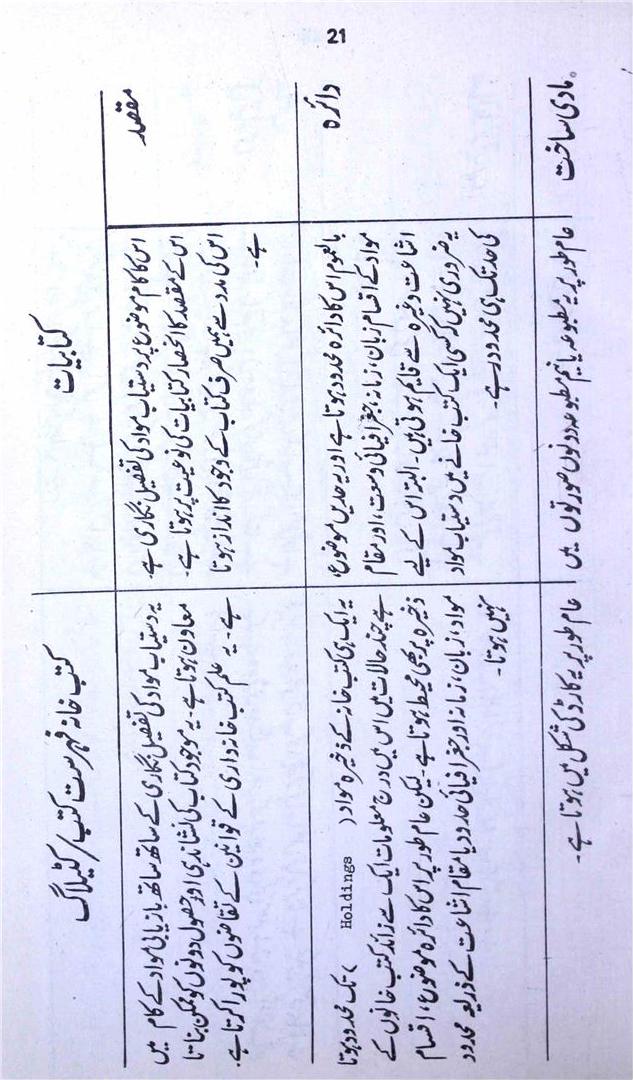 21
کتابیات
کتب خانہ فہرست کتب/کٹیلاگ
مقصد
اس کا کام موضوع پر دستیاب مواد کی تفصیل نگاری ہے۔
اس کے مقصد کا انحصار کتابیات کی نوعیت پر ہوتا ہے۔
اس کی مدد سے ہمیں صرف کتاب کے وجود کا اندازہ ہوتا
ہے۔
یہ دستیاب مواد کی تفصیل نگاری کے ساتھ ساتھ بازیابی مواد کے کام میں
معاون ہوتا ہے۔ یہ موجود کتاب کی نشاندہی اور حصول دونوں کو ممکن بناتا
ہے۔ یہ علم کتب خانہ داری کے قوانین کے تقاضوں کو پورا کرتا ہے۔
دائرہ
بالعموم اس کا دائرہ محدود ہوتا ہے اور یہ حدیں موضوع،
مواد کے اقسام، زبان، زمانہ، جغرافیائی وسعت، اور مقام
اشاعت وغیرہ سے قایم ہوتی ہیں۔ البتہ اس کے لیے
یہ ضروری نہیں کہ کسی ایک کتب خانے میں دستیاب مواد
کی حد تک ہی محدود رہے۔
یہ ایک ہی کتب خانہ کے ذخیرہ مواد ( Holdings ) تک محدود ہوتا
ہے چند حالات میں اس میں درج معلومات ایک سے زائد کتب خانوں کے
ذخیرہ پر بھی محیط ہوتا ہے۔ لیکن عام طور پر اس کا دائرہ موضوع، اقسام
مواد، زبان، زمانہ اور جغرافیائی حدود یا مقام اشاعت کے ذریعہ محدود
نہیں ہوتا۔
مادی ساخت
عام طور پر یہ مطبوعہ یا نیم مطبوعہ دونوں صورتوں میں
عام طور پر یہ کارڈ کی شکل میں ہوتا ہے۔